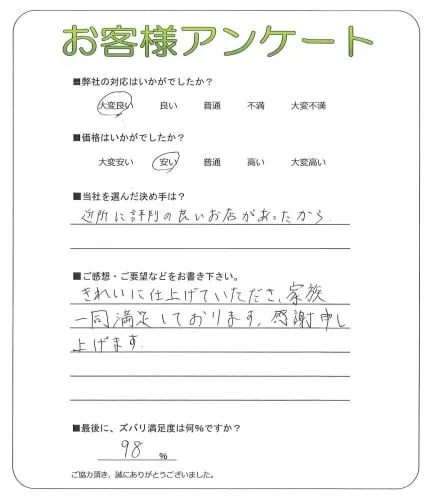 お客様アンケート
■弊社の対応はいかがでしたか？
大変良い 良い 普通 不満 大変不満
■価格はいかがでしたか？
大変安い 安い 普通 高い 大変高い
■当社を選んだ決め手は？
近所に評判の良いお店があったから.
■ご感想・ご要望などをお書き下さい。
きれいに仕上げていただき、家族
一同満足しております。感謝申し
上げます.
■最後に、ズバリ満足度は何%ですか？
98 %
ご協力頂き、誠にありがとうございました。